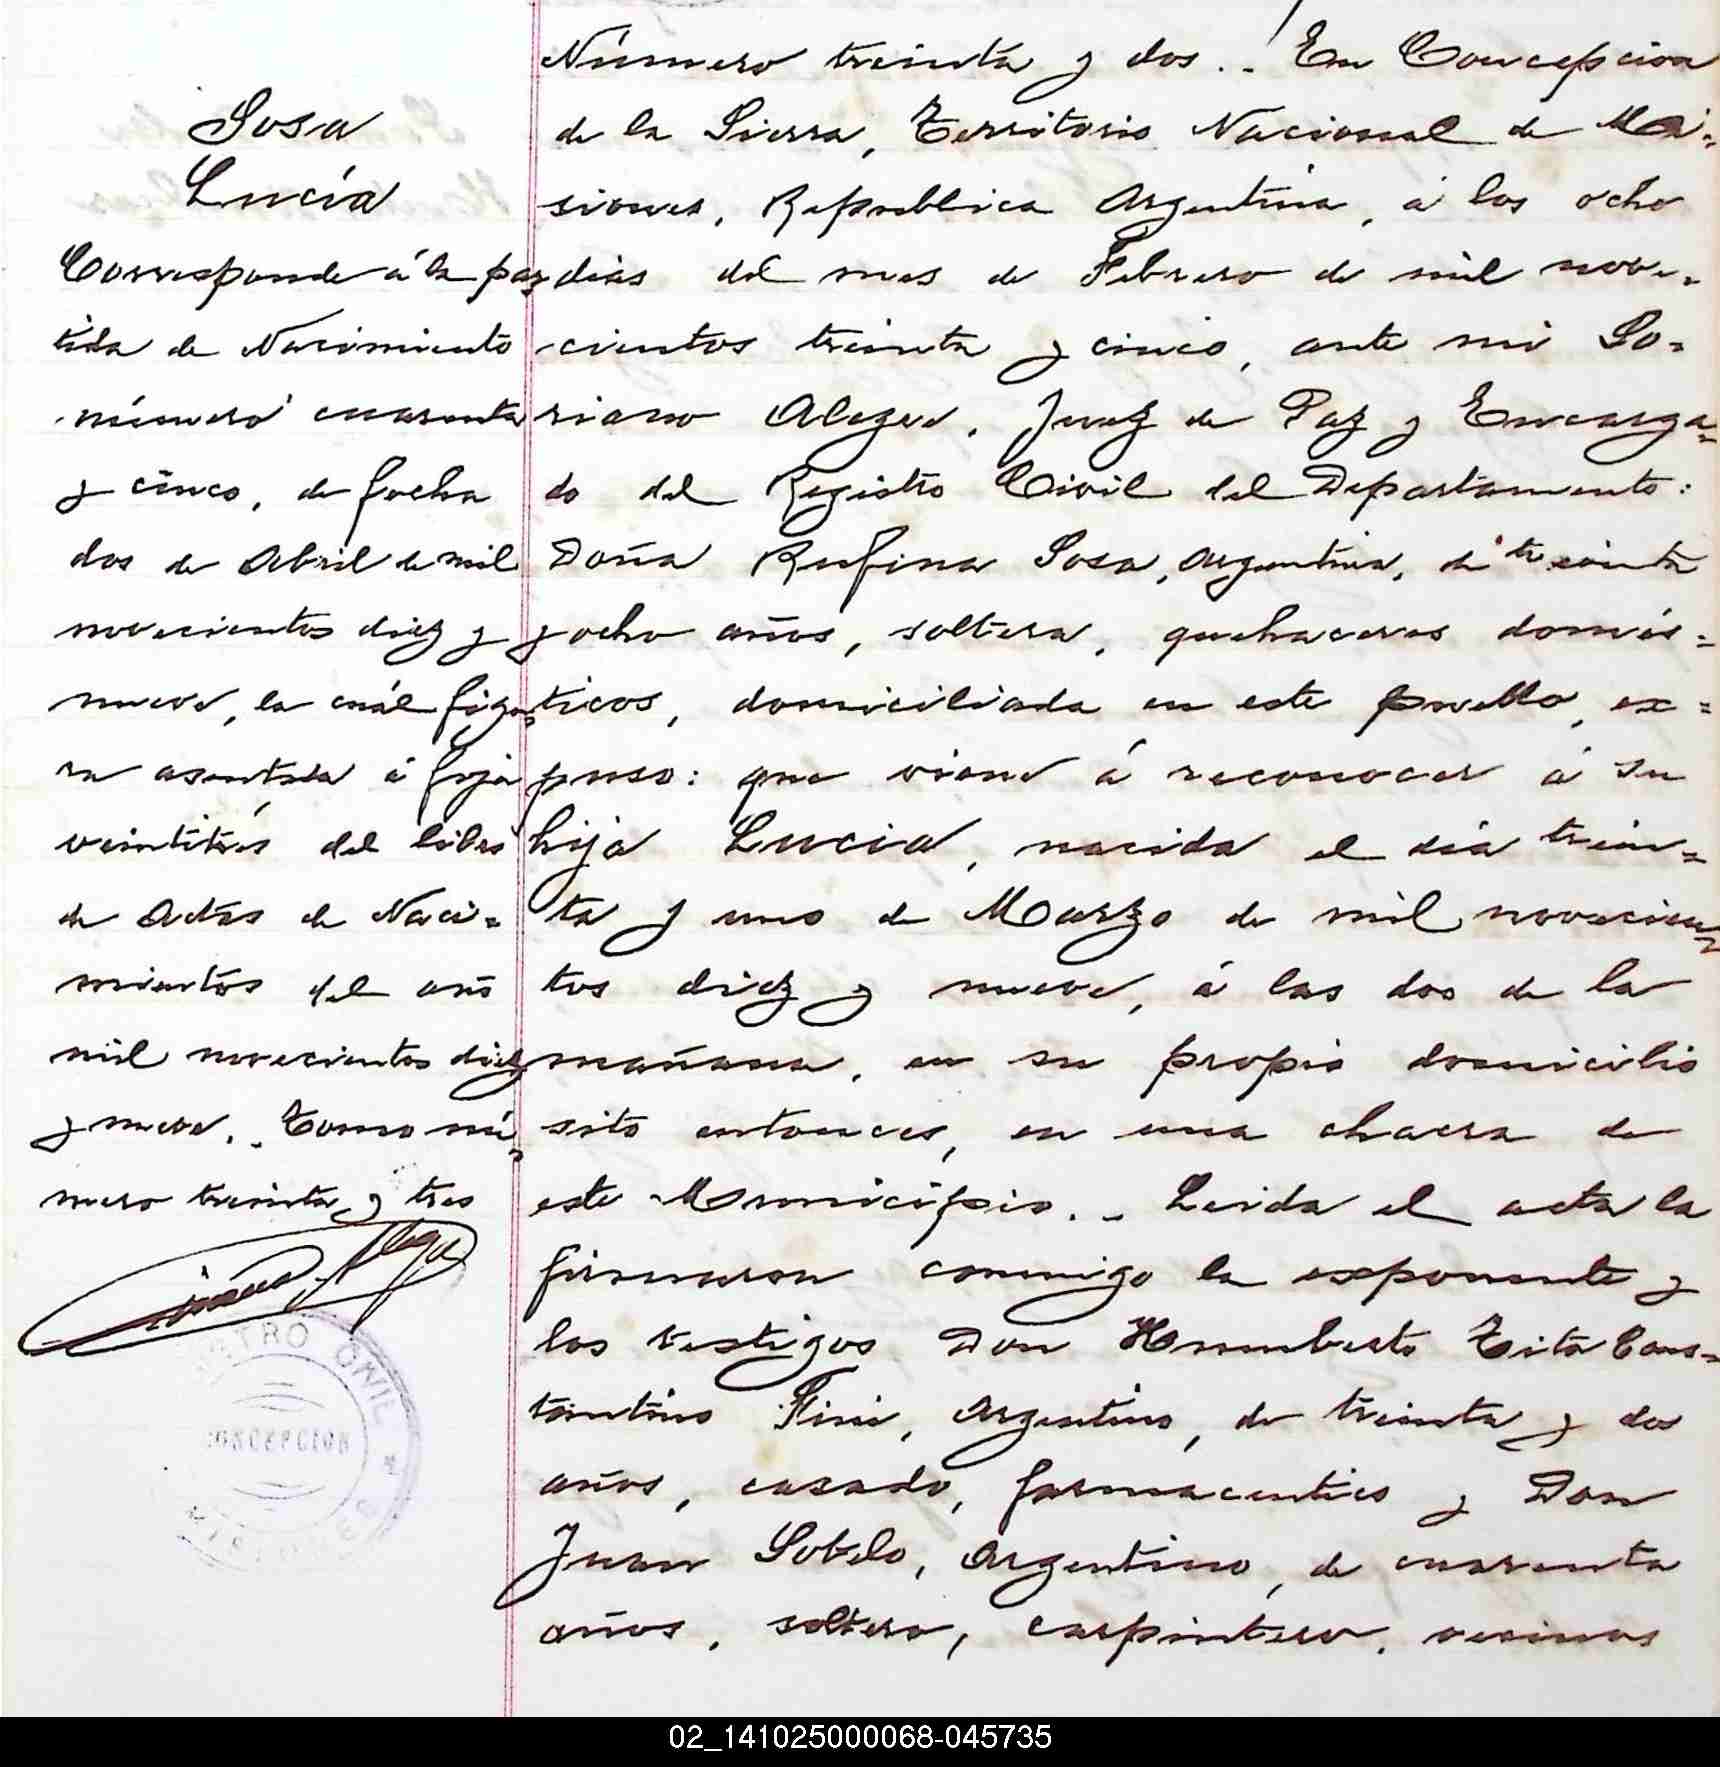 Sosa
Lucía
Corresponde á la par=
tida de Nacimiento
número cuarenta
y cinco, de fecha
dos de Abril de mil
novecientos diez y
nueve, la cuál figu=
ra asentada á foja
veintitrés del libro
de Actas de Naci=
mientos del año
mil novecientos diez
y nueve. - Tomo nú=
mero treinta y tres
Número treinta y dos. - En Concepcion
de la Sierra, Territorio Nacional de Mi=
siones, Republica Argentina, á los ocho
dias del mes de Febrero de mil nove=
cientos treinta y cinco, ante mi So=
riano Alegre, Juez de Paz y Encarga=
do del Registro Civil del Departamento:
Doña Rufina Sosa, argentina, de treinta
y ocho años, soltera, quehaceres domés=
ticos, domiciliada en este pueblo, ex=
puso: que viene á reconocer á su
hija Lucia, nacida el día trein=
ta y uno de Marzo de mil novecien=
tos diez y nueve, á las dos de la
mañana, en su propio domicilio
sito entonces, en una chacra de
este Municipio. - Leida el acta la
firmaron conmigo la exponente y
los testigos Don Humberto Tito Cons=
tantino Fini, argentino, de treinta y dos
años, casado, farmaceutico y Don
Juan Sotelo, argentino, de cuarenta
años, soltero, carpintero, vecinos
REGISTRO CIVIL
CONCEPCION
MISIONES
02_141025000068-045735